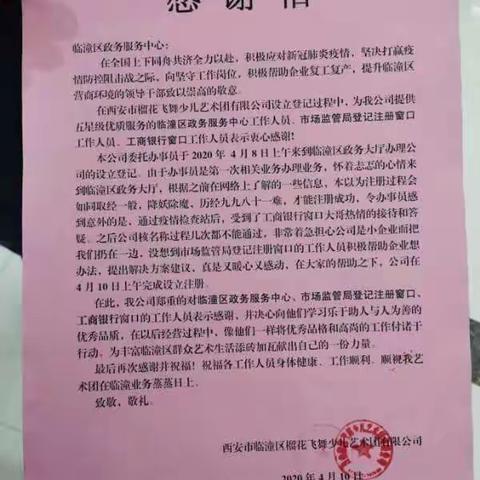 感谢信
临潼区政务服务中心：
在全国上下同舟共济全力以赴，积极应对新冠肺炎疫情，坚决打赢疫
情防控阻击战之际，向坚守工作岗位，积极帮助企业复工复产，提升临潼区
营商环境的领导干部致以崇高的敬意。
在西安市榴花飞舞少儿艺术团有限公司设立登记过程中，为我公司提供
五星级优质服务的临潼区政务服务中心工作人员、市场监管局登记注册窗口
工作人员、工商银行窗口工作人员表示衷心感谢！
本公司委托办事员于 2020 年 4 月 8 日上午来到临潼区政务大厅办理公
司的设立登记。由于办事员是第一次相关业务办理业务，怀着忐忑的心情来
到临潼区政务大厅，根据之前在网络上了解的一些信息，本以为注册过程会
如同取经一般，降妖除魔，历经九九八十一难，才能注册成功，令办事员感
到意外的是，通过疫情检查站后，受到了工商银行窗口大哥热情的接待和答
疑。之后公司核名称过程几次都不能通过，非常着急担心公司是小企业而把
我们扔在一边，没想到市场监管局登记注册窗口的工作人员积极帮助企业想
办法，提出解决方案建议，真是又暖心又感动，在大家的帮助之下，公司在
4 月 10 日上午完成设立注册。
在此，我公司郑重的对临潼区政务服务中心、市场监管局登记注册窗口、
工商银行窗口的工作人员表示感谢，并决心向他们学习乐于助人与人为善的
优秀品质，在以后经营过程中，像他们一样将优秀品格和高尚的工作付诸于
行动。为丰富临潼区群众艺术生活添砖加瓦献出自己的一份力量。
最后再次感谢并祝福！祝福各工作人员身体健康、工作顺利、顺祝我艺
术团在临潼业务蒸蒸日上。
致敬，敬礼。
西安市临潼区榴花飞舞少儿艺术团有限公司
2020 年 4 月 10 日